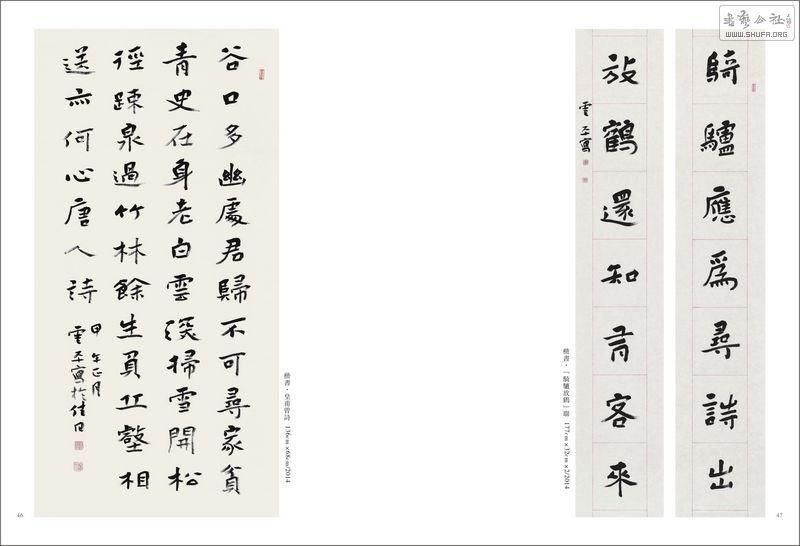 書藝公社
WWW.SHUFA.ORG
騎驢應爲尋詩出
放鶴還知有客來
雲平寫
楷書・「騎驢放鶴」聯 177cm×32cm×2/2014
47
谷口多幽處君歸不可尋家貧
青史在身老白雲深掃雪開松
徑踈泉過竹林餘生負丘壑相
送亦何心唐人詩
甲午正月
雲平寫於佳日
楷書・皇甫曾詩 136cm×68cm/2014
46